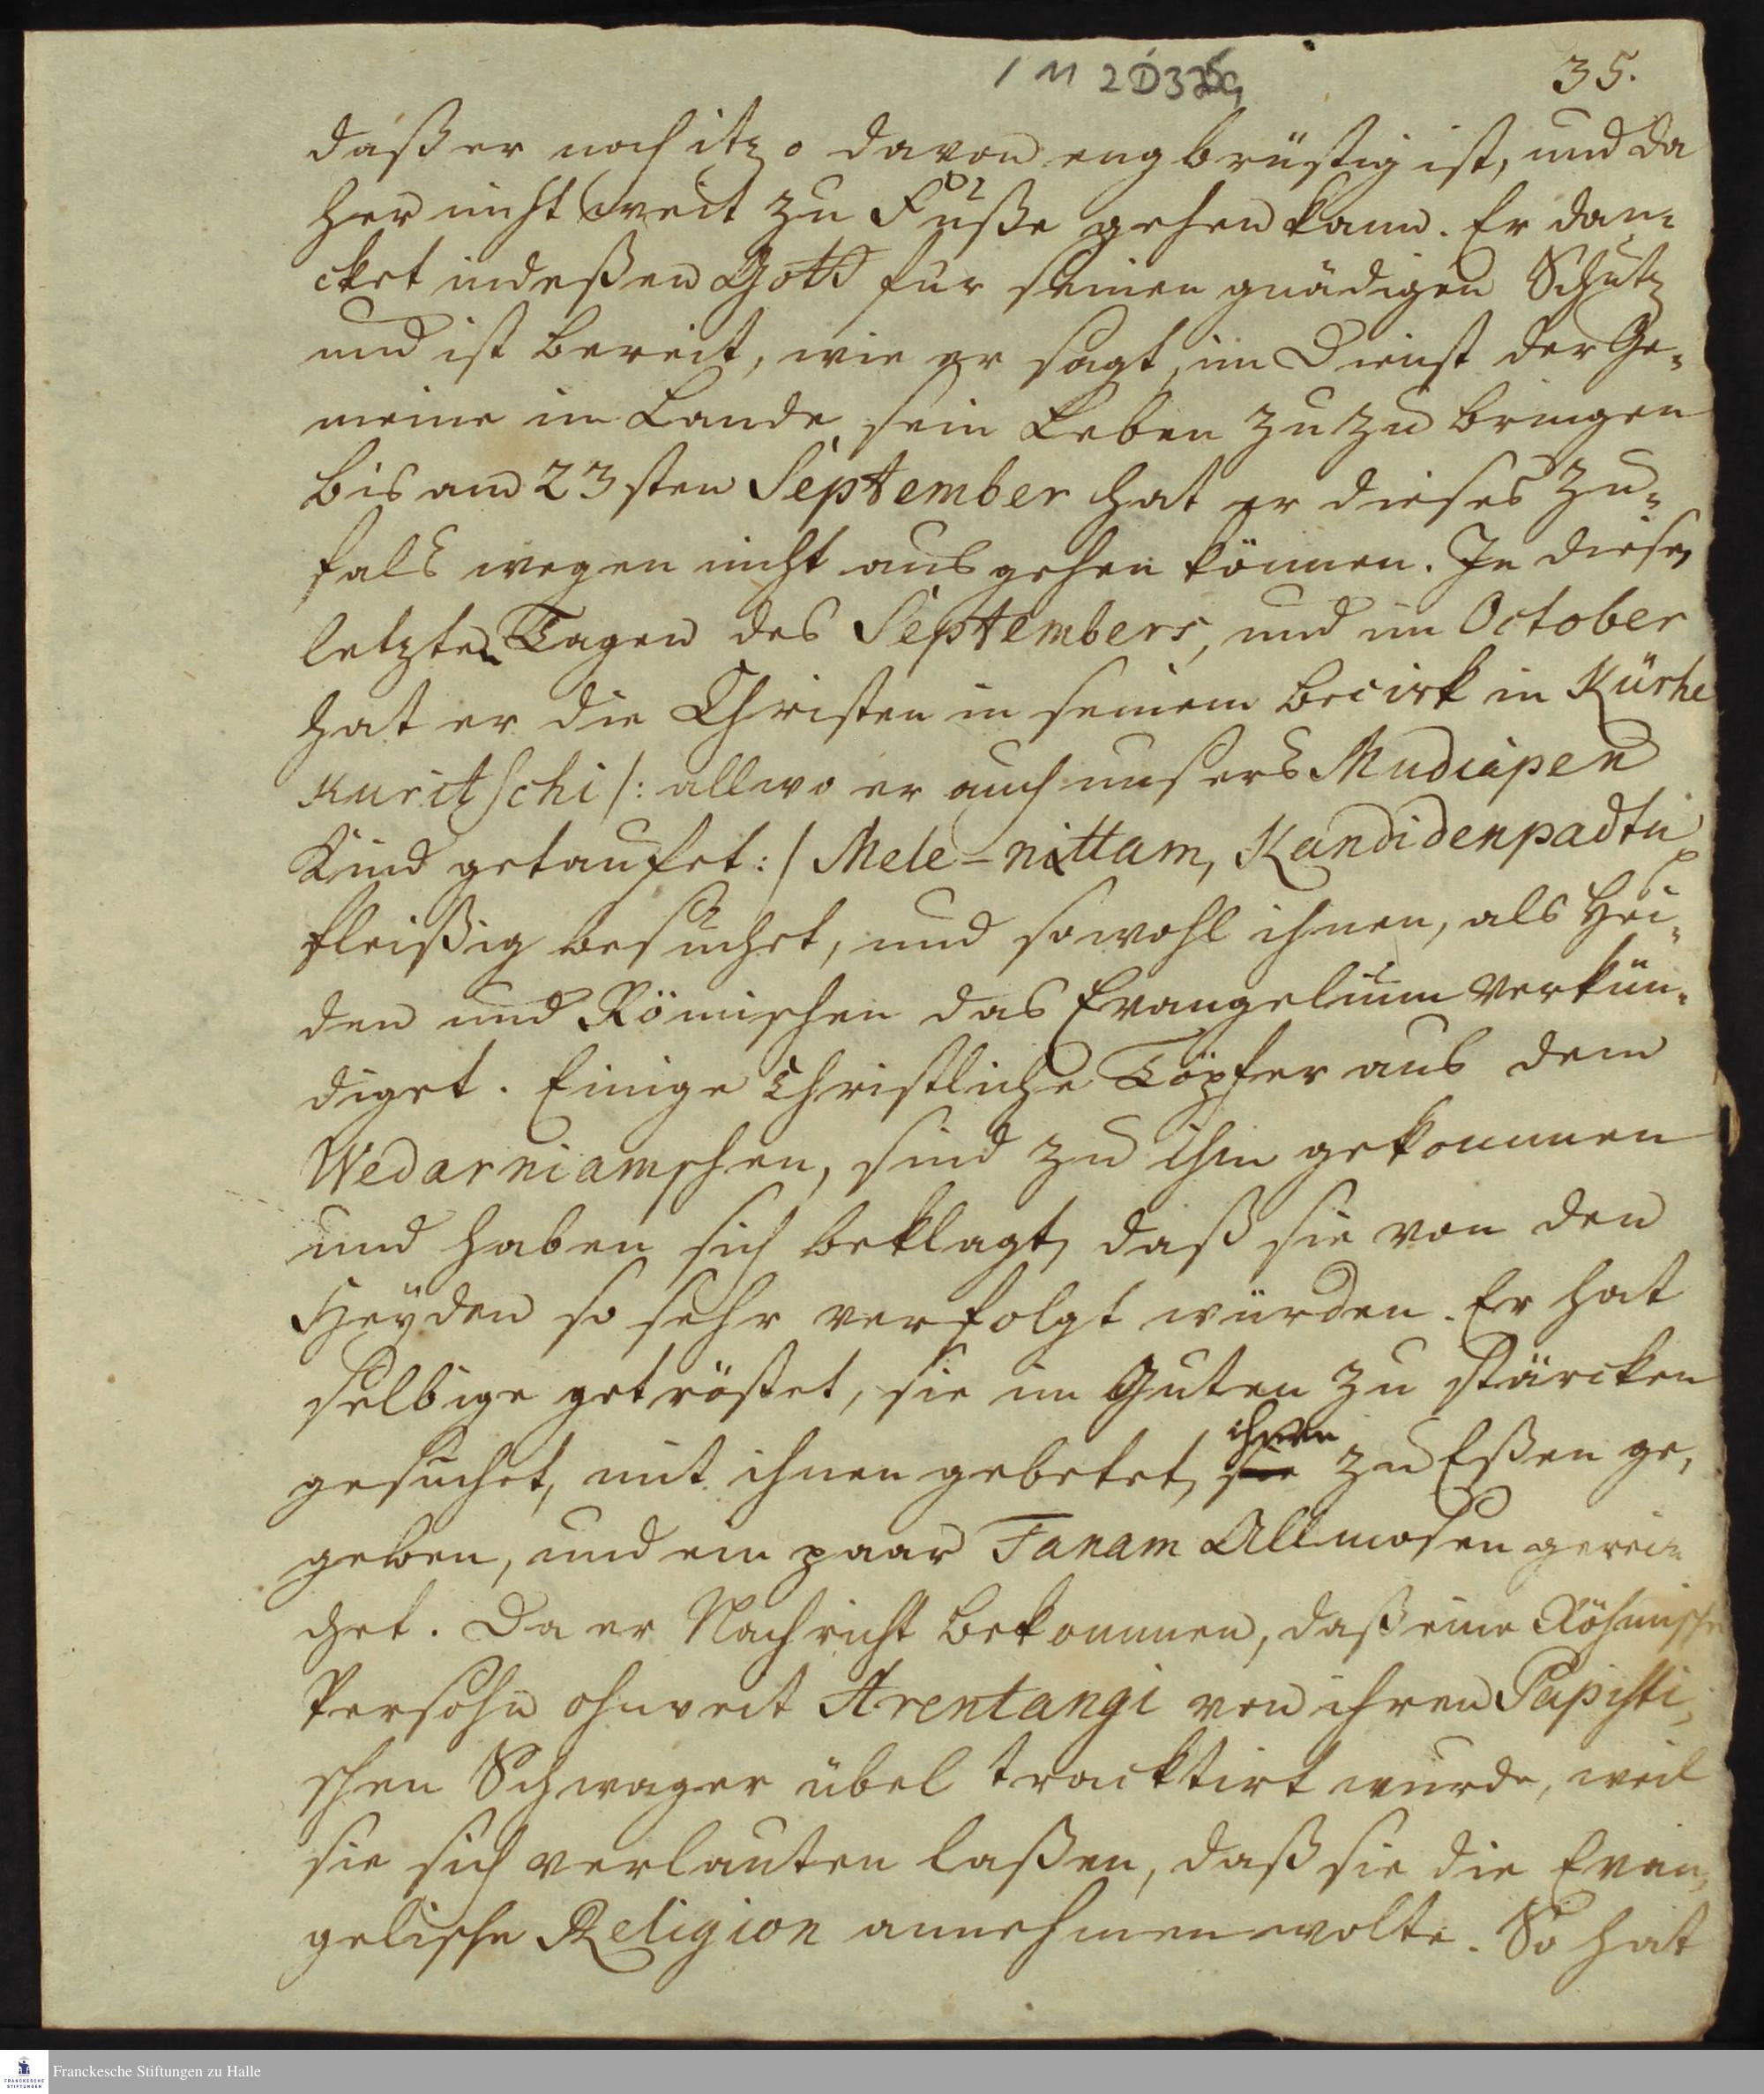 35.
daß er noch itzo davon engbrüstig ist, und da
her nicht weit zu Fuße gehen kann. Er dan-
cket indeßen Gott für seinen gnädigen Schutz
und ist bereit, wie er sagt, im Dienst der Ge-
meine im Lande, sein Leben zuzubringen
bis am 23sten September hat er dieses Zu-
falls wegen nicht ausgehen können. In diesen
letzten Tagen des Septembers, und im October
hat er die Christen in seinem Becirk in Kürhe
Kuritschi /: allwo er auch unsers Mudiapen
Kind getaufet :/ Mele-nittam, Kandidenpadtu
fleißig besuchet, und sowohl ihnen, als Hei-
den und Römischen das Evangelium verkün-
diget. Einige Christliche Töpfer aus dem
Wedarniamschen, sind zu ihm gekommen
und haben sich beklagt, daß sie von den
Heÿden so sehr verfolgt würden. Er hat
selbige getröstet, sie im Guten zu stärcken
gesuchet, mit ihnen gebetet, sie ihnen zu Eßen ge-
geben, und ein paar Fanam Allmosen gerei-
chet. Da er Nachricht bekommen, daß eine Röhmische
Persohn ohnweit Arentangi von ihren Papisti-
schen Schwager übel tracktirt wurde, weil
sie sich verlauten laßen, daß sie die Evan-
gelische Religion annehmen wolte. So hat
Franckesche Stiftungen zu Halle